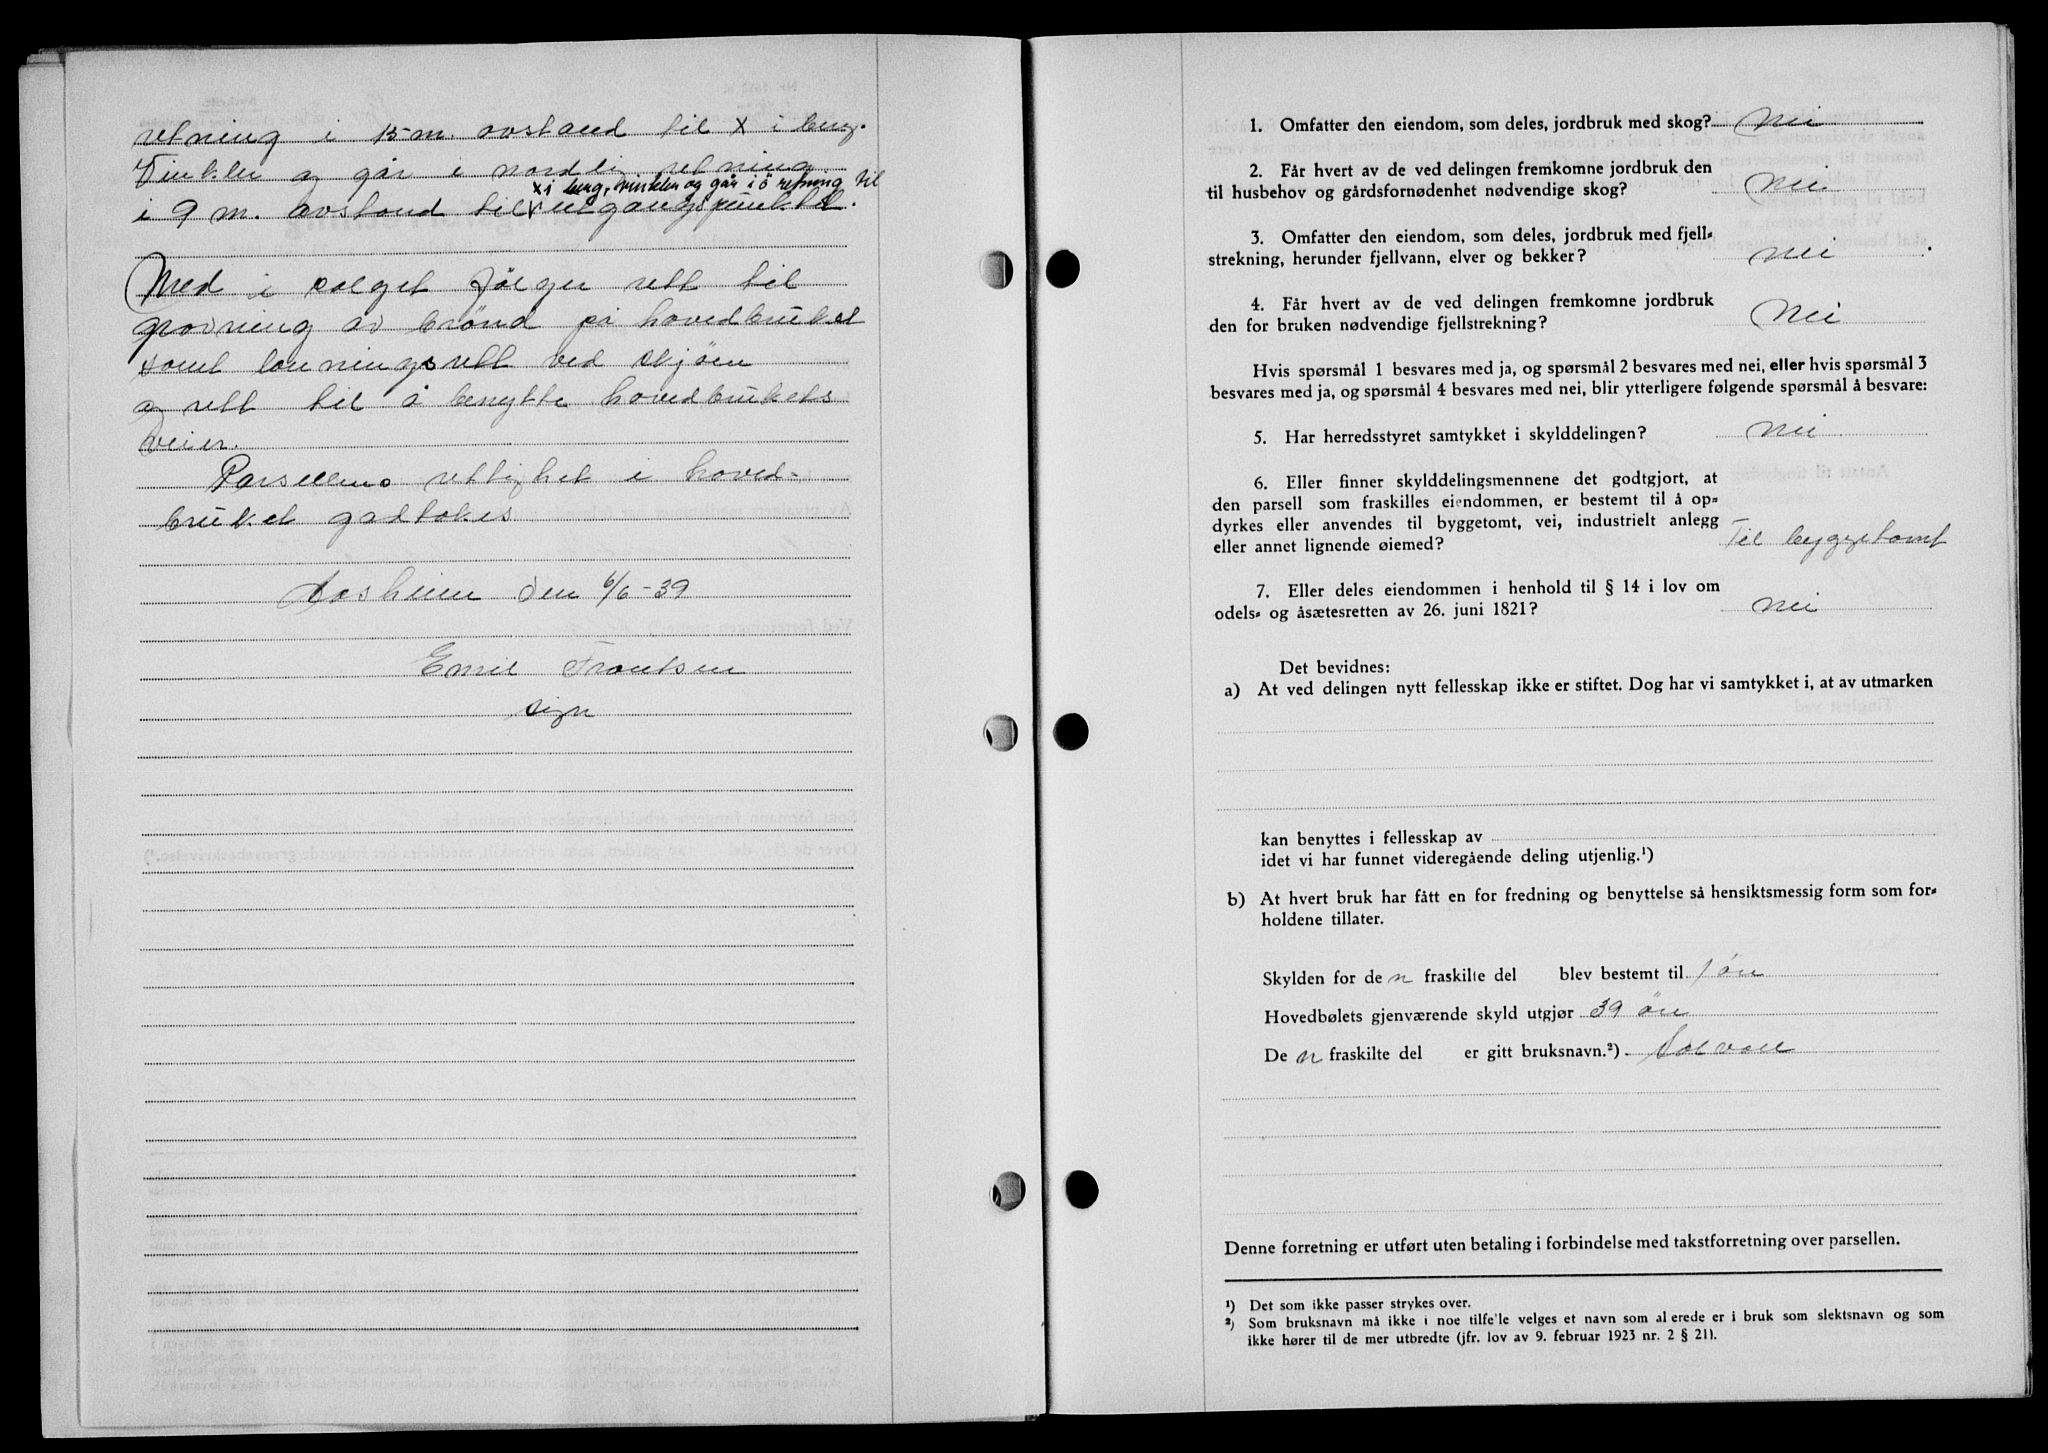 retning i 15 m. avstand til x i berg.
Vinkler og går i nordlig retning
x i berg, vinkler og går i ö retning til
i 9 m. avstand til utgangspunktet.
Med i salget følger rett til
gravning av brønd på hovedbruket
samt landningsrett ved sjøen
og rett til å benytte hovedbrukets
veier.
Parsellens rettighet i hoved-
bruket godtakes
Aasheim den 6/6-39
Emil Frantsen
sign
1. Omfatter den eiendom, som deles, jordbruk med skog? Nei
2. Får hvert av de ved delingen fremkomne jordbruk den
til husbehov og gårdsfornødenhet nødvendige skog? Nei
3. Omfatter den eiendom, som deles, jordbruk med fjell-
strekning, herunder fjellvann, elver og bekker? Nei
4. Får hvert av de ved delingen fremkomne jordbruk
den for bruken nødvendige fjellstrekning? Nei
Hvis spørsmål 1 besvares med ja, og spørsmål 2 besvares med nei, eller hvis spørsmål 3
besvares med ja, og spørsmål 4 besvares med nei, blir ytterligere følgende spørsmål å besvare:
5. Har herredsstyret samtykket i skylddelingen? Nei
6. Eller finner skylddelingsmennene det godtgjort, at
den parsell som fraskilles eiendommen, er bestemt til å op-
dyrkes eller anvendes til byggetomt, vei, industrielt anlegg
eller annet lignende øiemed? Til byggetomt
7. Eller deles eiendommen i henhold til § 14 i lov om
odels- og åsætesretten av 26. juni 1821? Nei
Det bevidnes:
a) At ved delingen nytt fellesskap ikke er stiftet. Dog har vi samtykket i, at av utmarken
kan benyttes i fellesskap av
idet vi har funnet videregående deling utjenlig.¹)
b) At hvert bruk har fått en for fredning og benyttelse så hensiktsmessig form som for-
holdene tillater.
Skylden for de n fraskilte del blev bestemt til 1 öre
Hovedbølets gjenværende skyld utgjør 39 öre
De n fraskilte del er gitt bruksnavn.²) Solvoll
Denne forretning er utført uten betaling i forbindelse med takstforretning over parsellen.
¹) Det som ikke passer strykes over.
²) Som bruksnavn må ikke i noe tilfe'le velges et navn som al erede er i bruk som slektsnavn og som
ikke hører til de mer utbredte (jfr. lov av 9. februar 1923 nr. 2 § 21).